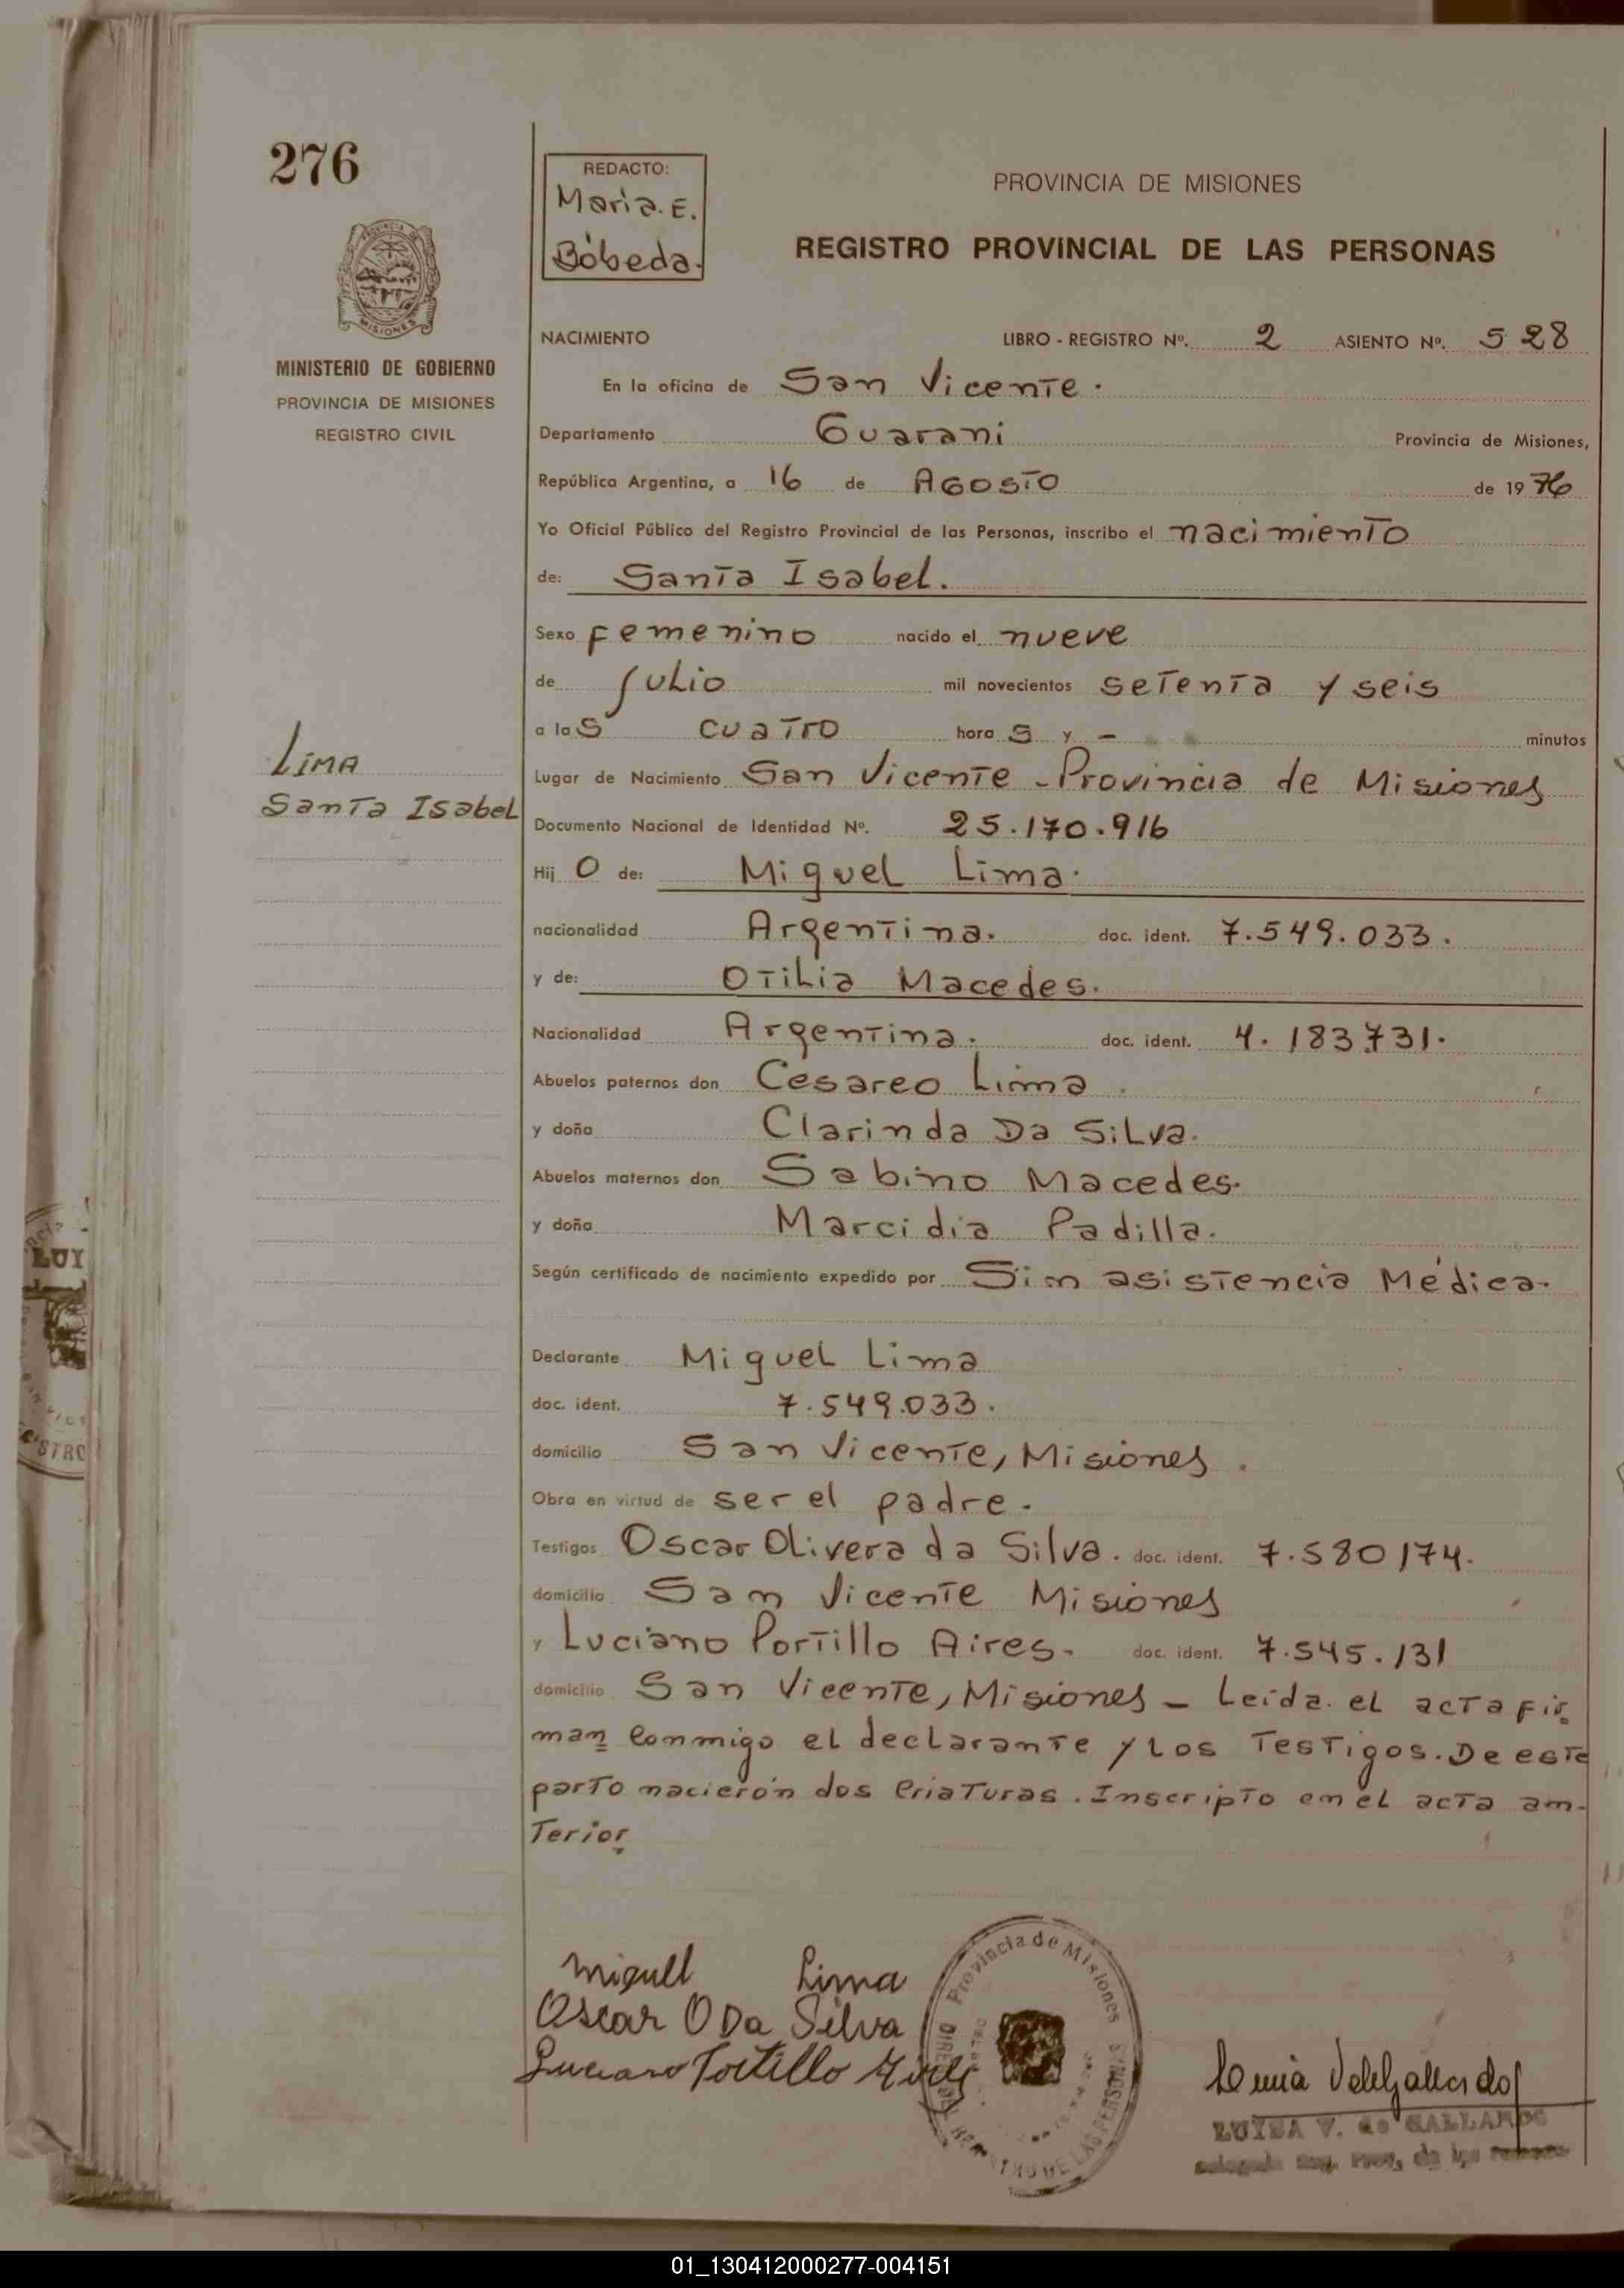 276
REDACTO:
Maria. E.
Bóbeda.
PROVINCIA DE MISIONES
REGISTRO PROVINCIAL DE LAS PERSONAS
MISIONES
MINISTERIO DE GOBIERNO
PROVINCIA DE MISIONES
REGISTRO CIVIL
NACIMIENTO LIBRO - REGISTRO Nº. 2 ASIENTO Nº. 528
En la oficina de San Vicente.
Departamento Guarani Provincia de Misiones,
República Argentina, a 16 de AGOSTO de 1976
Yo Oficial Público del Registro Provincial de las Personas, inscribo el nacimiento
de: Santa Isabel.
Sexo femenino nacido el nueve
de julio mil novecientos setenta y seis
a las cuatro horas y - minutos
Lima
Santa Isabel
Lugar de Nacimiento San Vicente - Provincia de Misiones
Documento Nacional de Identidad Nº. 25.170.916
Hij O de: Miguel Lima.
nacionalidad Argentina. doc. ident. 7.549.033.
y de: Otilia Macedes.
Nacionalidad Argentina. doc. ident. 4.183.731.
Abuelos paternos don Cesareo Lima
y doña Clarinda Da Silva.
Abuelos maternos don Sabino Macedes.
y doña Marcidia Padilla.
Según certificado de nacimiento expedido por Sim asistencia Médica.
Declarante Miguel Lima
doc. ident. 7.549.033.
domicilio San Vicente, Misiones.
Obra en virtud de ser el padre.
Testigos Oscar Olivera da Silva. doc. ident. 7.580174.
domicilio San Vicente Misiones
y Luciano Portillo Aires. doc. ident. 7.545.131
domicilio San Vicente, Misiones - Leida el acta fir
man conmigo el declarante y los Testigos. De este
parto nacierón dos criaturas. Inscripto en el acta an-
terior.
Miguel Lima
Oscar O Da Silva
Luciano Portillo
Provincia de Misiones
LUISA V. de GALLARDO
01_130412000277-004151